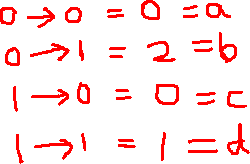 0 → 0 = 0 = a
0 → 1 = 2 = b
1 → 0 = 0 = c
1 → 1 = 1 = d